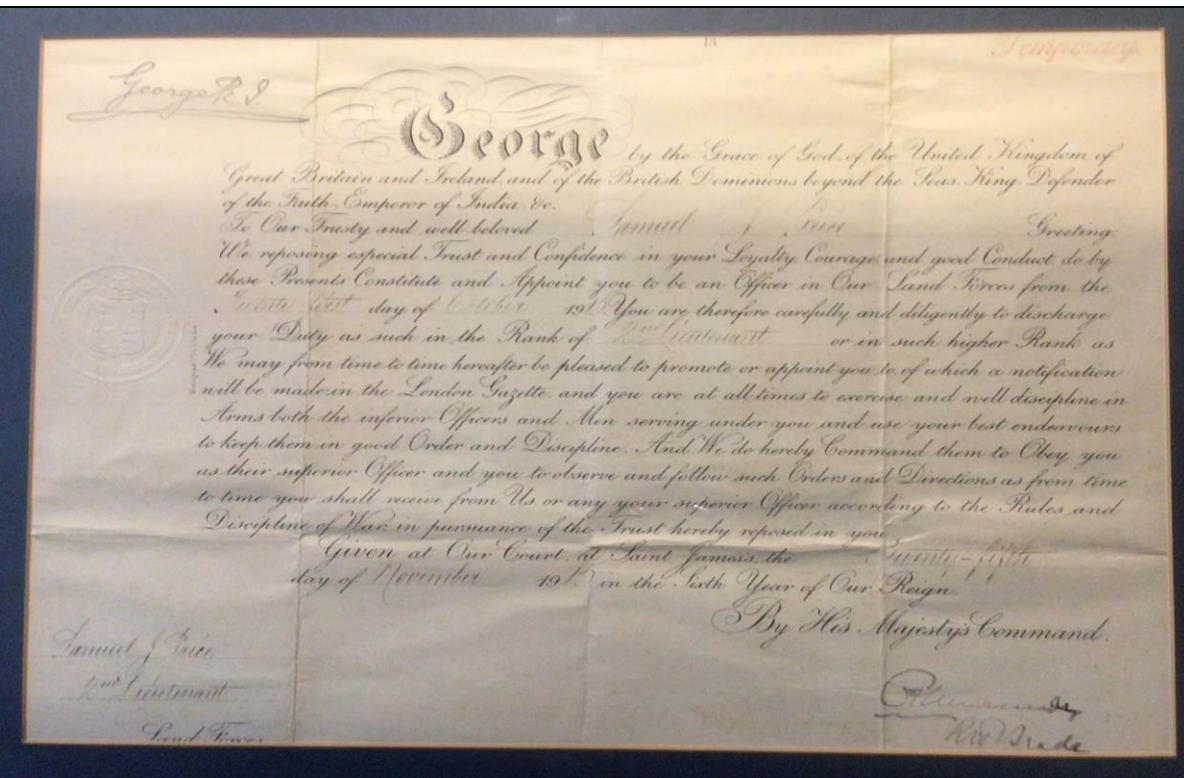 Temporary
George R.I.
George by the Grace of God, of the United Kingdom of
Great Britain and Ireland, and of the British Dominions beyond the Seas, King, Defender
of the Faith, Emperor of India, &c.
To Our Trusty and well beloved Samuel J Price Greeting.
We, reposing especial Trust and Confidence in your Loyalty, Courage, and good Conduct, do by
these Presents Constitute and Appoint you to be an Officer in Our Land Forces from the
Twenty first day of October 1915 You are therefore carefully and diligently to discharge
your Duty as such in the Rank of 2nd Lieutenant or in such higher Rank as
We may from time to time hereafter be pleased to promote or appoint you to, of which a notification
will be made in the London Gazette, and you are at all times to exercise and well discipline in
Arms both the inferior Officers and Men serving under you and use your best endeavours
to keep them in good Order and Discipline. And We do hereby Command them to Obey you
as their superior Officer and you to observe and follow such Orders and Directions as from time
to time you shall receive from Us, or any your superior Officer, according to the Rules and
Discipline of War, in pursuance of the Trust hereby reposed in you.
Given at Our Court, at Saint James's, the Twenty-fifth
day of November 1915 in the Sixth Year of Our Reign.
By His Majesty's Command.
Samuel J Price
2nd Lieutenant
Land Forces